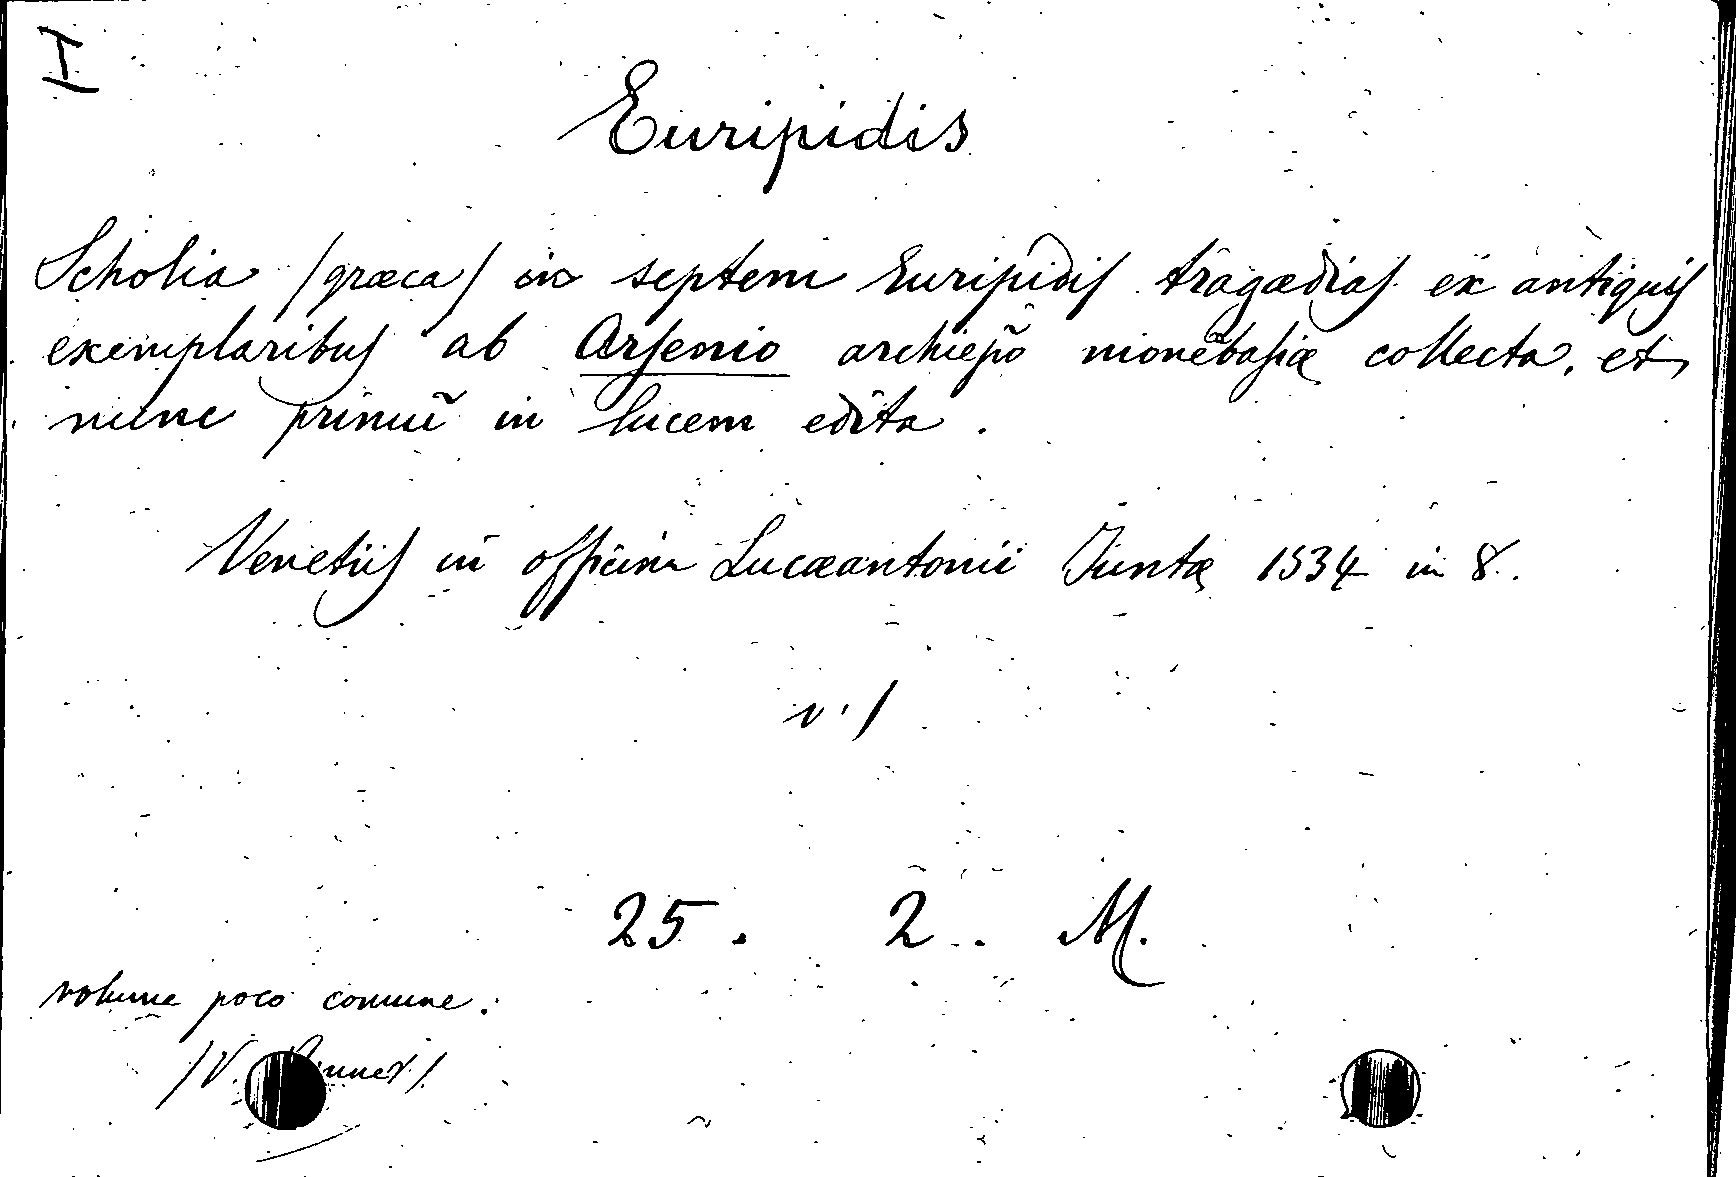 I
Euripidis
Scholia /græca/ in septem Euripidis tragædias ex antiquis
exemplaribus ab Arsenio archiepõ monẽbasiæ collecta, et
nunc primũ in lucem edita.
Venetiis in officina Lucæantonii Juntæ 1534 in 8.
v. 1
25. 2. M.
volume poco comune.
/V. Brunet/.